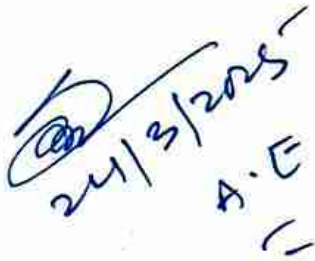 24/3/2025
A.E